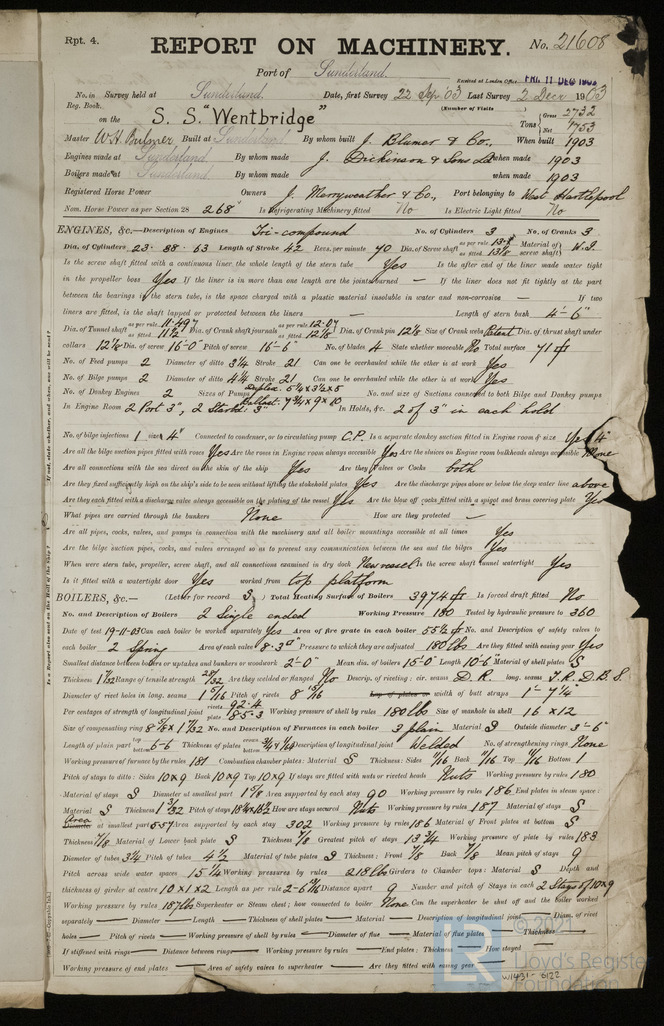 Rpt. 4.
REPORT ON MACHINERY.
No. 21608
Port of Sunderland.
Received at London Office FRI. 11 DEC 1903
No. in Survey held at Sunderland. Date, first Survey 22 Sep '03 Last Survey 2 Decr 1903
Reg. Book. (Number of Visits
on the S. S. "Wentbridge" Tons Gross 2732 Net 1753
Master W.H. Bulmer Built at Sunderland By whom built J. Blumer & Co. When built 1903
Engines made at Sunderland By whom made J. Dickinson & Sons Ld when made 1903
Boilers made at Sunderland By whom made when made 1903
Registered Horse Power Owners J. Merryweather & Co., Port belonging to West Hartlepool
Nom. Horse Power as per Section 28 268 Is Refrigerating Machinery fitted No Is Electric Light fitted No
ENGINES, &c.—Description of Engines Tri-compound No. of Cylinders 3 No. of Cranks 3
Dia. of Cylinders 23. 38. 63 Length of Stroke 42 Revs. per minute 70 Dia. of Screw shaft as per rule 13.3 as fitted 13 1/2 Material of screw shaft W.I.
Is the screw shaft fitted with a continuous liner the whole length of the stern tube Yes Is the after end of the liner made water tight
in the propeller boss Yes If the liner is in more than one length are the joints burned — If the liner does not fit tightly at the part
between the bearings in the stern tube, is the space charged with a plastic material insoluble in water and non-corrosive — If two
liners are fitted, is the shaft lapped or protected between the liners — Length of stern bush 4'-6"
Dia. of Tunnel shaft as per rule 11.497 as fitted 11 1/2 Dia. of Crank shaft journals as per rule 12.07 as fitted 12 1/8 Dia. of Crank pin 12 1/8 Size of Crank webs Patent Dia. of thrust shaft under
collars 12 1/8 Dia. of screw 16'-0" Pitch of screw 16'-6" No. of blades 4 State whether moveable No Total surface 71 ft
No. of Feed pumps 2 Diameter of ditto 3 1/4 Stroke 21 Can one be overhauled while the other is at work Yes
No. of Bilge pumps 2 Diameter of ditto 4 1/4 Stroke 21 Can one be overhauled while the other is at work Yes
No. of Donkey Engines 2 Sizes of Pumps Duplex: 5 1/4 x 3 1/2 x 5 Ballast: 7 3/4 x 9 x 10 No. and size of Suctions connected to both Bilge and Donkey pumps
In Engine Room 2 Port 3", 2 Starbd: 3" In Holds, &c. 2 of 3" in each hold
No. of bilge injections 1 sizes 4" Connected to condenser, or to circulating pump C.P. Is a separate donkey suction fitted in Engine room & size Yes 4"
Are all the bilge suction pipes fitted with roses Yes Are the roses in Engine room always accessible Yes Are the sluices on Engine room bulkheads always accessible None
Are all connections with the sea direct on the skin of the ship Yes Are they Valves or Cocks both
Are they fixed sufficiently high on the ship's side to be seen without lifting the stokehold plates Yes Are the discharge pipes above or below the deep water line above
Are they each fitted with a discharge valve always accessible on the plating of the vessel Yes Are the blow off cocks fitted with a spigot and brass covering plate Yes
What pipes are carried through the bunkers None How are they protected —
Are all pipes, cocks, valves, and pumps in connection with the machinery and all boiler mountings accessible at all times Yes
Are the bilge suction pipes, cocks, and valves arranged so as to prevent any communication between the sea and the bilges Yes
When were stern tube, propeller, screw shaft, and all connections examined in dry dock New vessel Is the screw shaft tunnel watertight Yes
Is it fitted with a watertight door Yes worked from top platform
BOILERS, &c.— (Letter for record S) Total Heating Surface of Boilers 3974 ft Is forced draft fitted No
No. and Description of Boilers 2 Single ended Working Pressure 180 Tested by hydraulic pressure to 360
Date of test 19-11-03 Can each boiler be worked separately Yes Area of fire grate in each boiler 55 1/2 ft No. and Description of safety valves to
each boiler 2 Spring Area of each valve 8.3" Pressure to which they are adjusted 180 lbs Are they fitted with easing gear Yes
Smallest distance between boilers or uptakes and bunkers or woodwork 2'-0" Mean dia. of boilers 15'-0" Length 10'-6" Material of shell plates S
Thickness 1 1/32 Range of tensile strength 28/32 Are they welded or flanged No Descrip. of riveting: cir. seams D.R. long. seams T.R.D.B.S.
Diameter of rivet holes in long. seams 1 5/16 Pitch of rivets 8 15/16 Lap of plates or width of butt straps 1'-7 1/4"
Per centages of strength of longitudinal joint rivets 92.4 plate 85.3 Working pressure of shell by rules 180 lbs Size of manhole in shell 16 x 12
Size of compensating ring 8 5/8 x 1 7/32 No. and Description of Furnaces in each boiler 3 plain Material S Outside diameter 3'-6"
Length of plain part top bottom 6-6 Thickness of plates crown bottom Description of longitudinal joint Welded No. of strengthening rings None
Working pressure of furnace by the rules 181 Combustion chamber plates: Material S Thickness: Sides 11/16 Back 11/16 Top 11/16 Bottom 1
Pitch of stays to ditto: Sides 10x9 Back 10x9 Top 10x9 If stays are fitted with nuts or riveted heads Nuts Working pressure by rules 180
Material of stays S Diameter at smallest part 1 5/8 Area supported by each stay 90 Working pressure by rules 186 End plates in steam space:
Material S Thickness 1 3/32 Pitch of stays How are stays secured Nuts Working pressure by rules 187 Material of stays S
Area at smallest part 5.57 Area supported by each stay 302 Working pressure by rules 186 Material of Front plates at bottom S
Thickness 7/8 Material of Lower back plate S Thickness 7/8 Greatest pitch of stays 13 3/4 Working pressure of plate by rules 183
Diameter of tubes 3 1/4 Pitch of tubes 4 1/2 Material of tube plates S Thickness: Front 7/8 Back 7/8 Mean pitch of stays 9
Pitch across wide water spaces 15 1/4 Working pressures by rules 218 lbs Girders to Chamber tops: Material S Depth and
thickness of girder at centre 10 x 1 x 2 Length as per rule Distance apart 9 Number and pitch of Stays in each 2 Stays of 10x9
Working pressure by rules 187 lbs Superheater or Steam chest; how connected to boiler None Can the superheater be shut off and the boiler worked
separately — Diameter — Length — Thickness of shell plates — Material — Description of longitudinal joint — Diam. of rivet
holes — Pitch of rivets — Working pressure of shell by rules — Diameter of flue — Material of flue plates — Thickness —
If stiffened with rings — Distance between rings — Working pressure by rules — End plates: Thickness — How stayed —
Working pressure of end plates — Area of safety valves to superheater — Are they fitted with easing gear —
© 2021
Lloyd's Register
Foundation
LR
W1431-0122